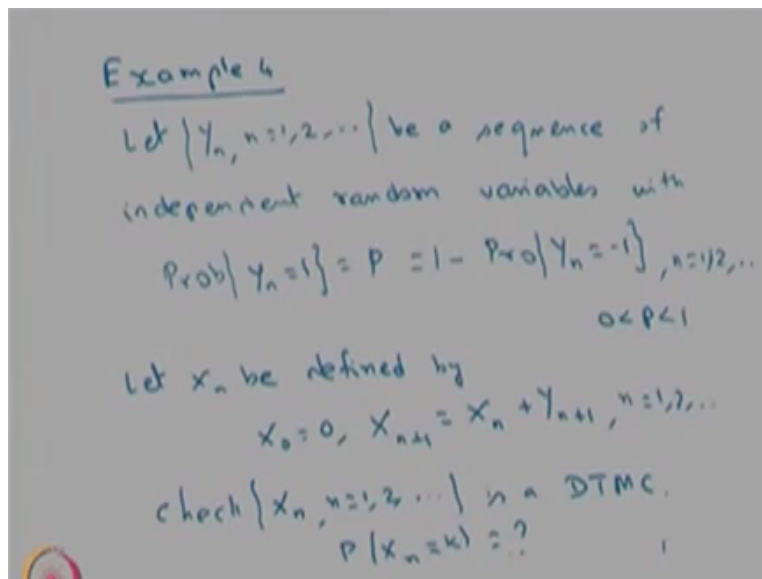 Example 4
Let {Yn, n=1,2,...} be a sequence of
independent random variables with
Prob{Yn=1} = P = 1 - Pro{Yn=-1}, n=1,2,..
0<P<1
Let Xn be defined by
X0=0, Xn+1 = Xn + Yn+1, n=1,2,..
Check {Xn, n=1,2,...} is a DTMC.
P(Xn=k) = ?